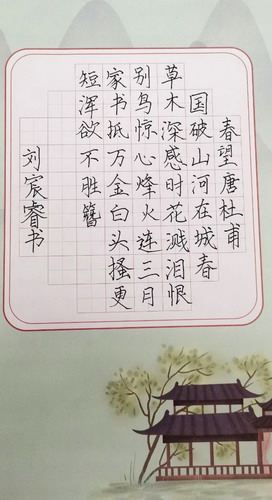 春望唐杜甫
国破山河在城春
草木深感时花溅泪恨
别鸟惊心烽火连三月
家书抵万金白头搔更
短浑欲不胜簪
刘宸睿书